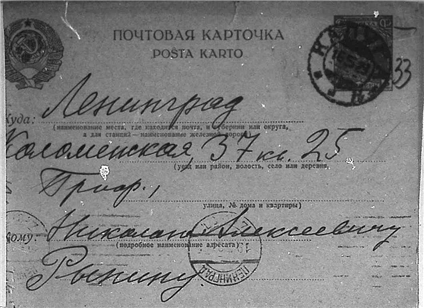 ПОЧТОВАЯ КАРТОЧКА
POŜTA KARTO
КАЛУГА
33
Куда: Ленинград
(наименование места, где находится почта, и губернии или округа,
а для станций – наименование железной дороги)
Коломенская, 37 кв. 25
(уезд или район, волость, село или деревня,
Проф.,
улица, № дома и квартиры)
Кому: Николаю Алексеевичу
(подробное наименование адресата)
ЛЕНИНГРАД
Рынину